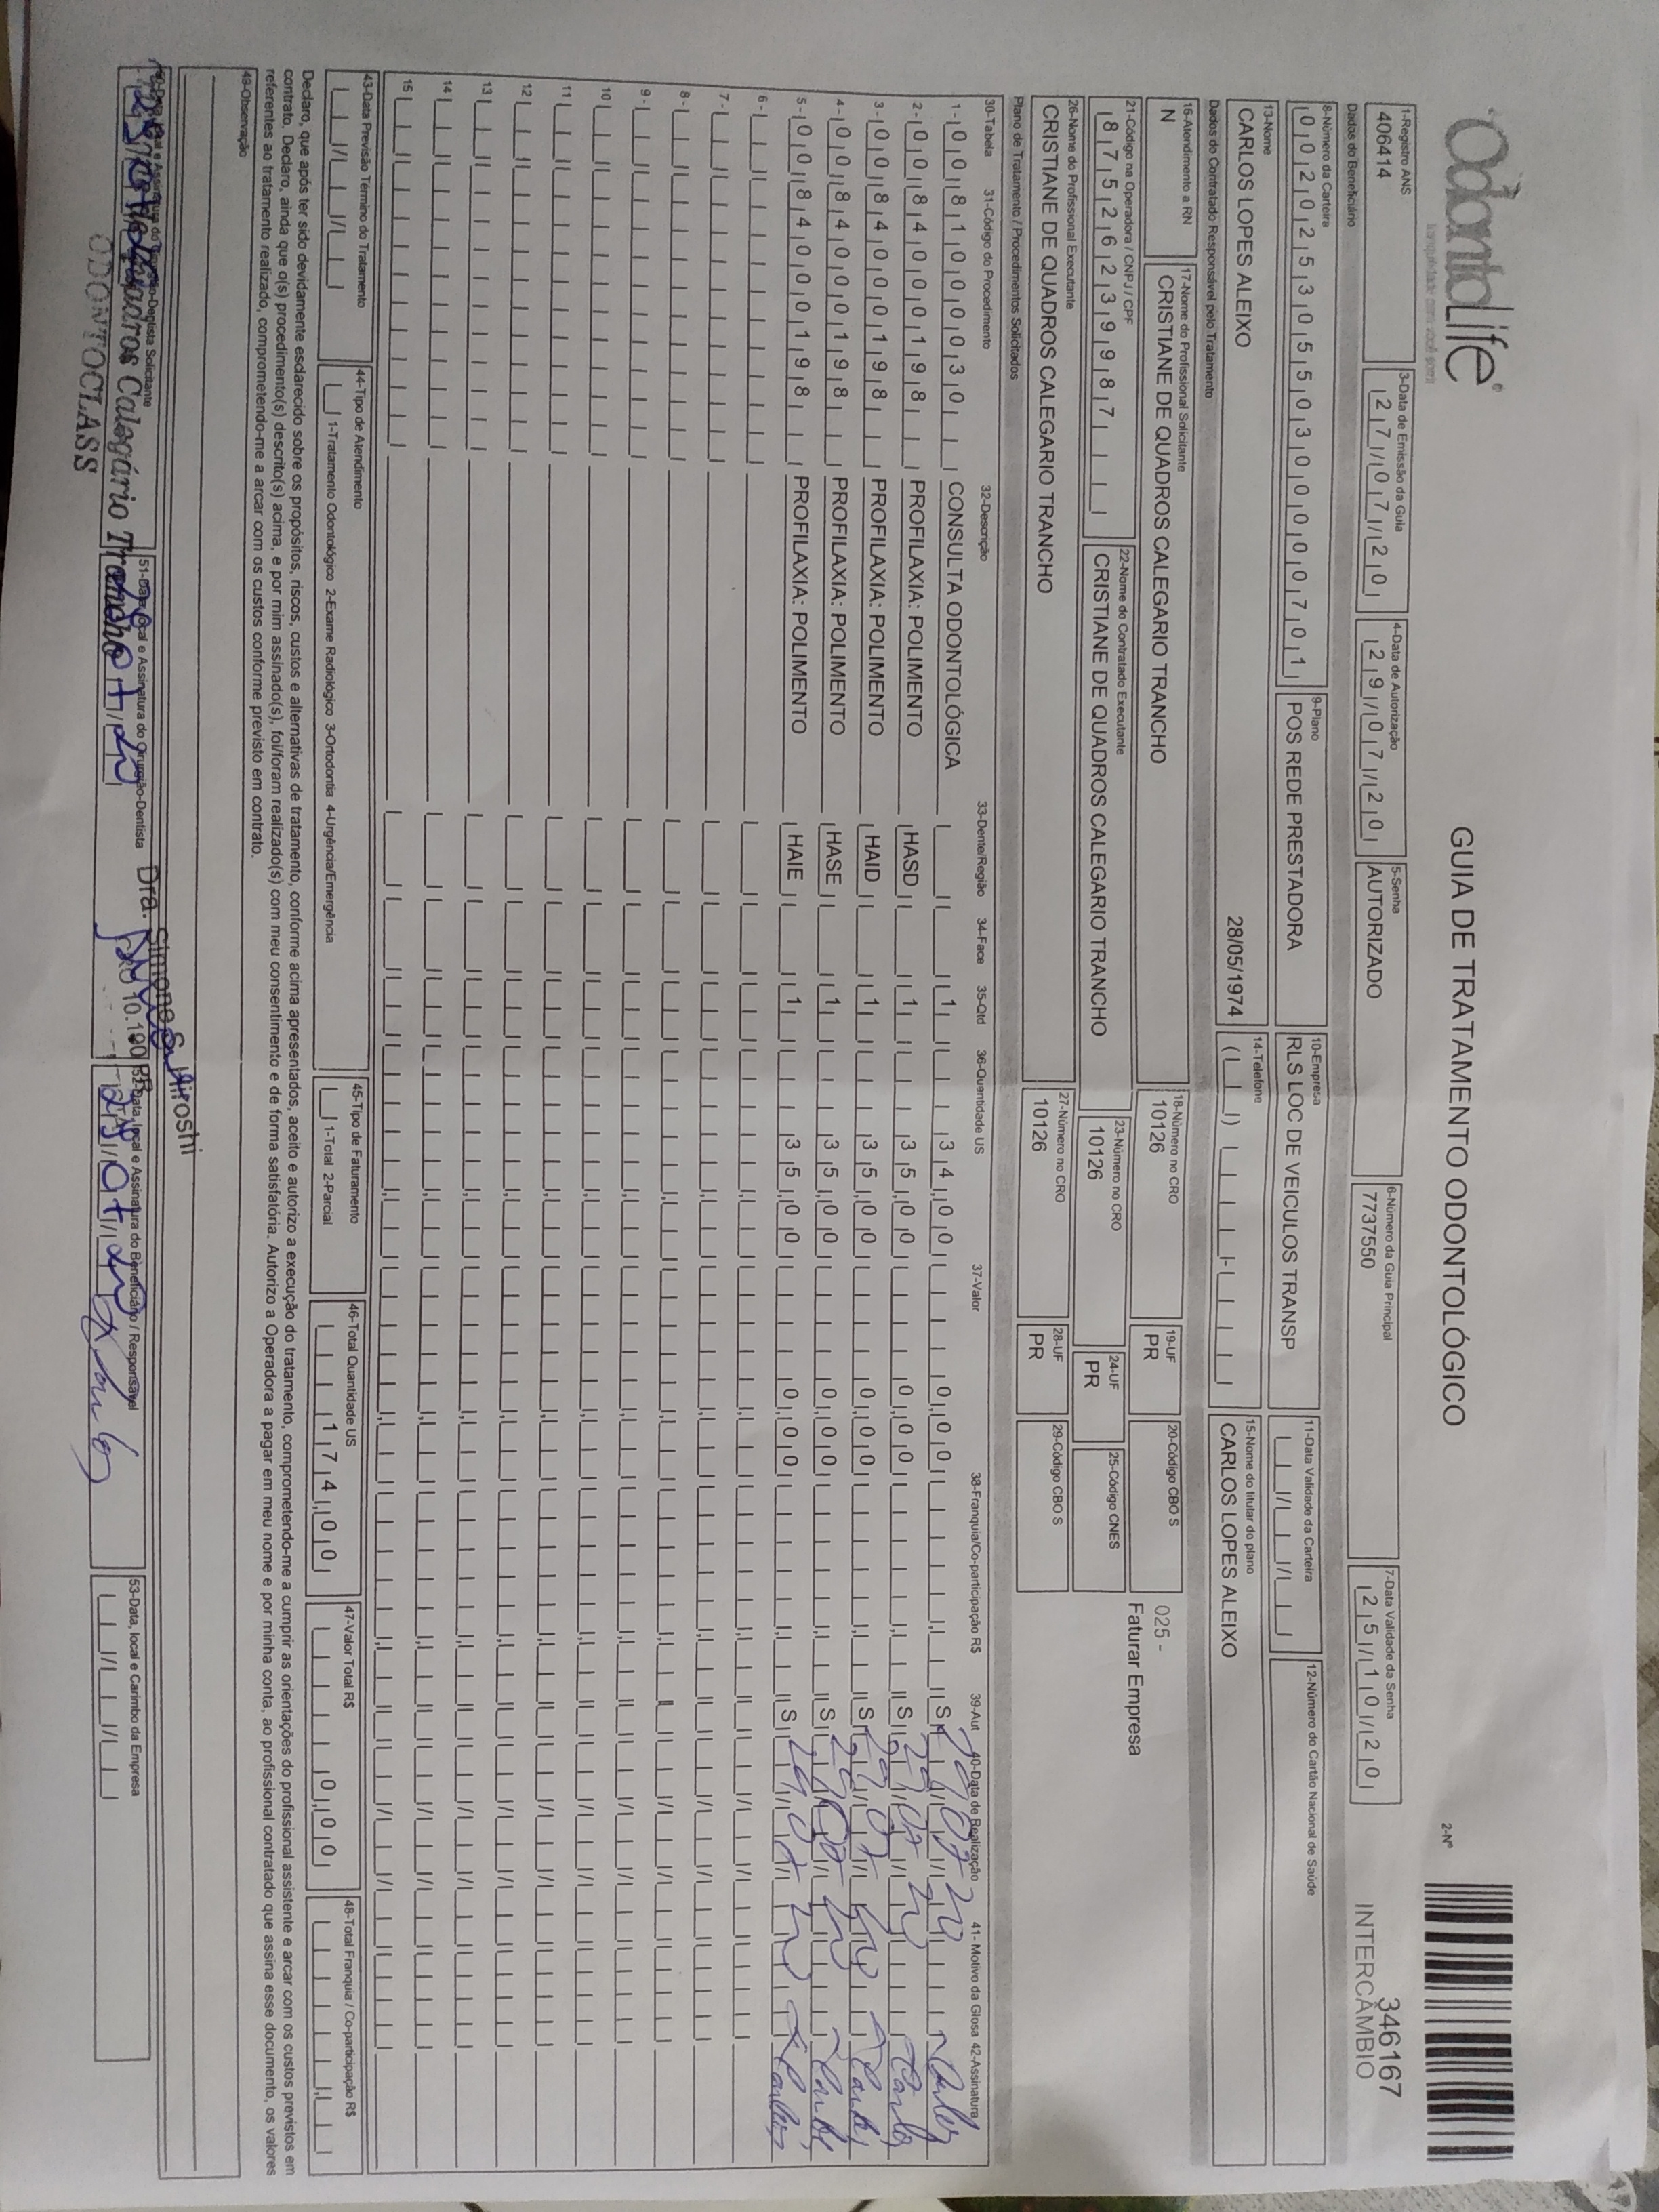 OdontoLife®
tranquilidade para você sorrir
GUIA DE TRATAMENTO ODONTOLÓGICO
2-Nº
346167
INTERCÂMBIO
1-Registro ANS
406414
3-Data de Emissão da Guia
27/07/20
4-Data de Autorização
29/07/20
5-Senha
AUTORIZADO
6-Número da Guia Principal
7737550
7-Data Validade da Senha
25/10/20
Dados do Beneficiário
8-Número da Carteira
00202530550300000701
9-Plano
POS REDE PRESTADORA
10-Empresa
RLS LOC DE VEICULOS TRANSP
11-Data Validade da Carteira
12-Número do Cartão Nacional de Saúde
13-Nome
CARLOS LOPES ALEIXO 28/05/1974
14-Telefone
15-Nome do titular do plano
CARLOS LOPES ALEIXO
Dados do Contratado Responsável pelo Tratamento
16-Atendimento a RN
N
17-Nome do Profissional Solicitante
CRISTIANE DE QUADROS CALEGARIO TRANCHO
18-Número no CRO
10126
19-UF
PR
20-Código CBO S
025 -
Faturar Empresa
21-Código na Operadora / CNPJ / CPF
87526239987
22-Nome do Contratado Executante
CRISTIANE DE QUADROS CALEGARIO TRANCHO
23-Número no CRO
10126
24-UF
PR
25-Código CNES
26-Nome do Profissional Executante
CRISTIANE DE QUADROS CALEGARIO TRANCHO
27-Número no CRO
10126
28-UF
PR
29-Código CBO S
Plano de Tratamento / Procedimentos Solicitados
30-Tabela 31-Código do Procedimento 32-Descrição 33-Dente/Região 34-Face 35-Qtd 36-Quantidade US 37-Valor 38-Franquia/Co-participação R$ 39-Aut 40-Data de Realização 41- Motivo da Glosa 42-Assinatura
1 - 00 81000030 CONSULTA ODONTOLÓGICA 1 34,00 0,00 S 29 07 20 Carlos
2 - 00 84000198 PROFILAXIA: POLIMENTO HASD 1 35,00 0,00 S 29 07 20 Carlos
3 - 00 84000198 PROFILAXIA: POLIMENTO HAID 1 35,00 0,00 S 29 07 20 Carlos
4 - 00 84000198 PROFILAXIA: POLIMENTO HASE 1 35,00 0,00 S 29 07 20 Carlos
5 - 00 84000198 PROFILAXIA: POLIMENTO HAIE 1 35,00 0,00 S 29 07 20 Carlos
6 -
7 -
8 -
9 -
10
11
12
13
14
15
43-Data Previsão Término do Tratamento
44-Tipo de Atendimento
1-Tratamento Odontológico 2-Exame Radiológico 3-Ortodontia 4-Urgência/Emergência
45-Tipo de Faturamento
1-Total 2-Parcial
46-Total Quantidade US
174,00
47-Valor Total R$
0,00
48-Total Franquia / Co-participação R$
Declaro, que após ter sido devidamente esclarecido sobre os propósitos, riscos, custos e alternativas de tratamento, conforme acima apresentados, aceito e autorizo a execução do tratamento, comprometendo-me a cumprir as orientações do profissional assistente e arcar com os custos previstos em
contrato. Declaro, ainda que o(s) procedimento(s) descrito(s) acima, e por mim assinado(s), foi/foram realizado(s) com meu consentimento e de forma satisfatória. Autorizo a Operadora a pagar em meu nome e por minha conta, ao profissional contratado que assina esse documento, os valores
referentes ao tratamento realizado, comprometendo-me a arcar com os custos conforme previsto em contrato.
49-Observação
50-Data, local e Assinatura do Cirurgião-Dentista Solicitante
Quadros Calegário Trancho
ODONTOCLASS
51-Data, local e Assinatura do Cirurgião-Dentista
Dra. Simone S. Hiroshi
CRO 10.190 PR
52-Data, local e Assinatura do Beneficiário / Responsável
29 07 20 Carlos
53-Data, local e Carimbo da Empresa